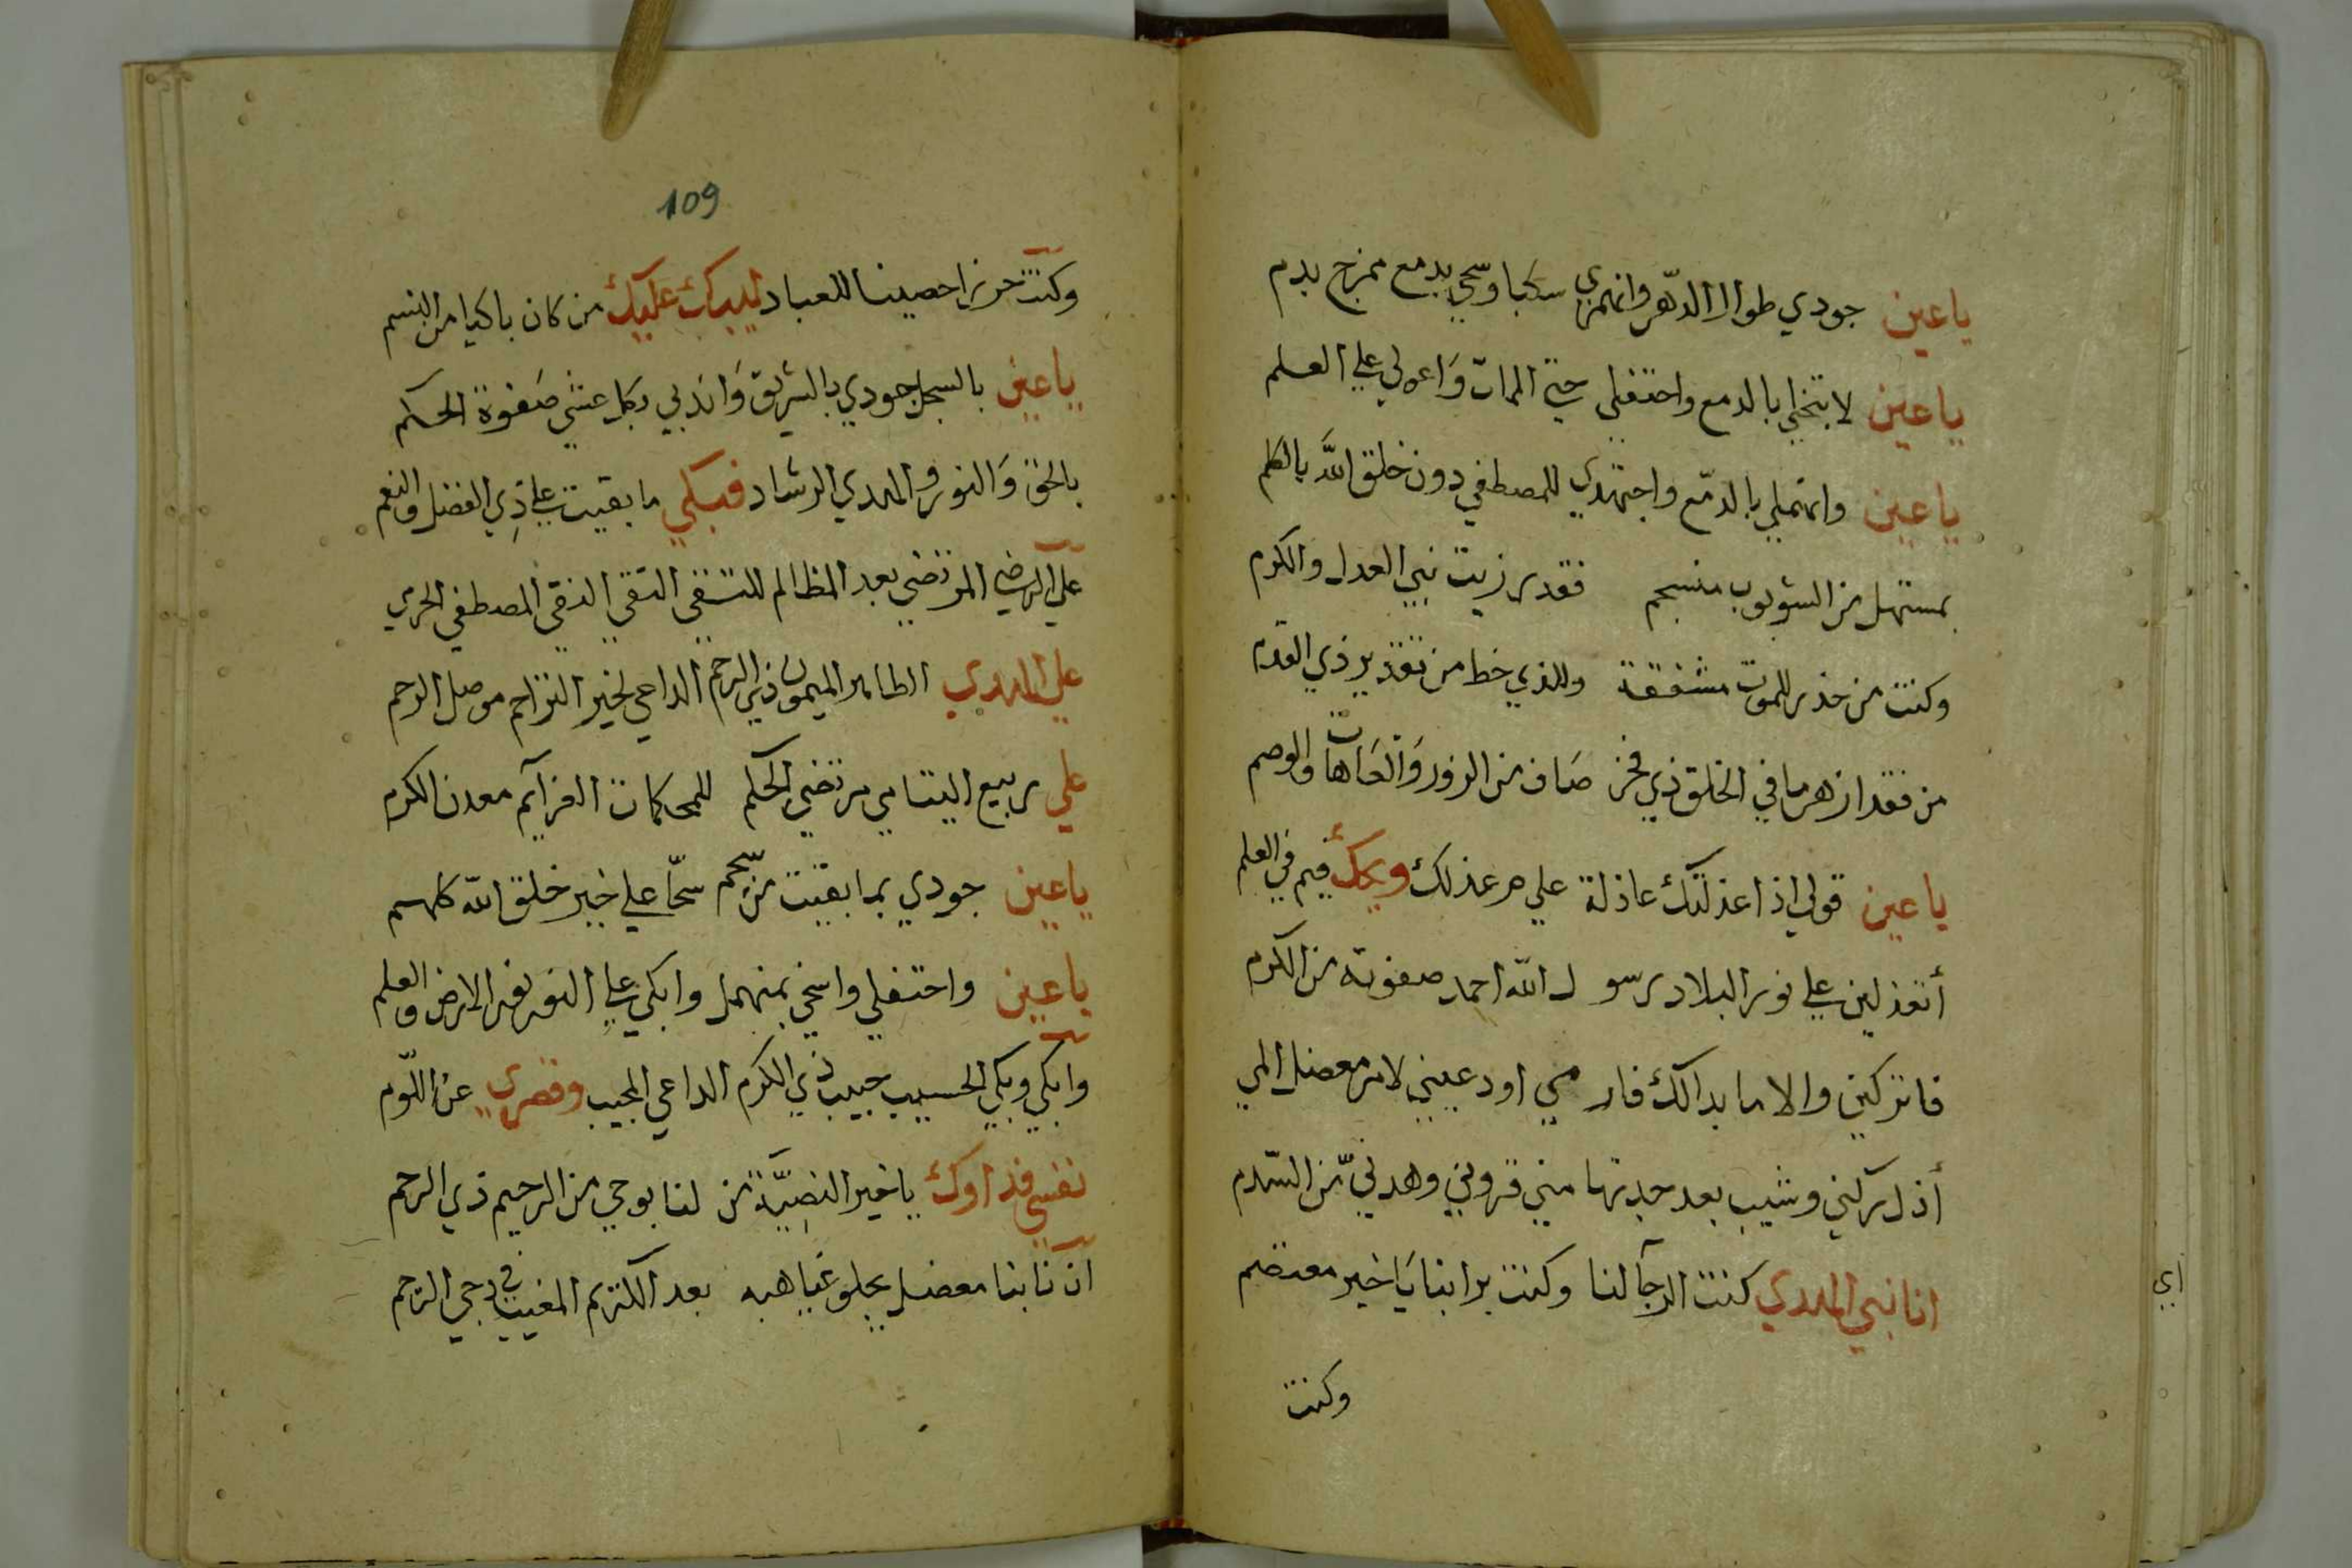 يا عين جودي طوال الدهر وانهمري سكبا وسحي بدمع ممزج بدم
يا عين لا تبخلي بالدمع واحتفلي حتى الممات وَاعولي علي العلم
يا عين وانهملي بالدمّع واجتهدي للمصطفي دون خلق اللّه بالكلم
بمستهل من الشوبوب منسجم فقد رزيت نبي العدل والكرم
وكنت من حذر للموت مشفقة وللذي خط من تقدير ذي القدم
من فقد ازهر ما في الخلق ذي فخر صَاف من الزور وَالعَاهات والوصم
يا عين قولي اذا عذلتك عاذلة علي م عذلك ويحك فيم في العلم
أتعذلين علي نور البلاد رسول اللّه احمد صفوته من الكرم
فاتركين والا ما بدالك فار مي اود عيني لامر معضل المي
أذل ركني وشيب بعد جدتها مني قروني وهدني من السدم
انا نبي الهدي كنت الرجآ لنا وكنت برا بنا يَا خير معتصم
وكنت
109
وكنت حرزا حصينا للعباد ليبك عليك من كان باكيا من النسم
يا عين بالسجل جودي بالشريق وَاندبي بكل عشي صَفوة الحكم
بالحق وَالنور والهدي الرشاد فبكي ما بقيت علي ذِي الفضل والنعم
علي الرضي المرتضي بعد المظالم للتسقي التقي النقي المصطفي الحرمي
علي الهدي الطاهر الميمون ذي الرحم الداعي لخير التراحم موصل الرحم
علي ربيع اليتامي مرتضي الحكم للمحكمات العزآيم معدن الكرم
يا عين جودي بما بقيت من سجم سحّا علي خير خلق اللّه كلهم
يا عين واحتفلي واسخي بمنهمل وابكي علي النور نور الارض والعلم
وابكي وبكي الحسيب حبيب ذي الكرم الداعي المجيب وقصري عن اللوم
نفسي فداوك يا خير البَرِيَّة من لنا بوحي من الرحيم ذي الرحم
ان نابنا معضل يجلو غياهبه بعد الكتريم المغيب في دجي الترحم
اي